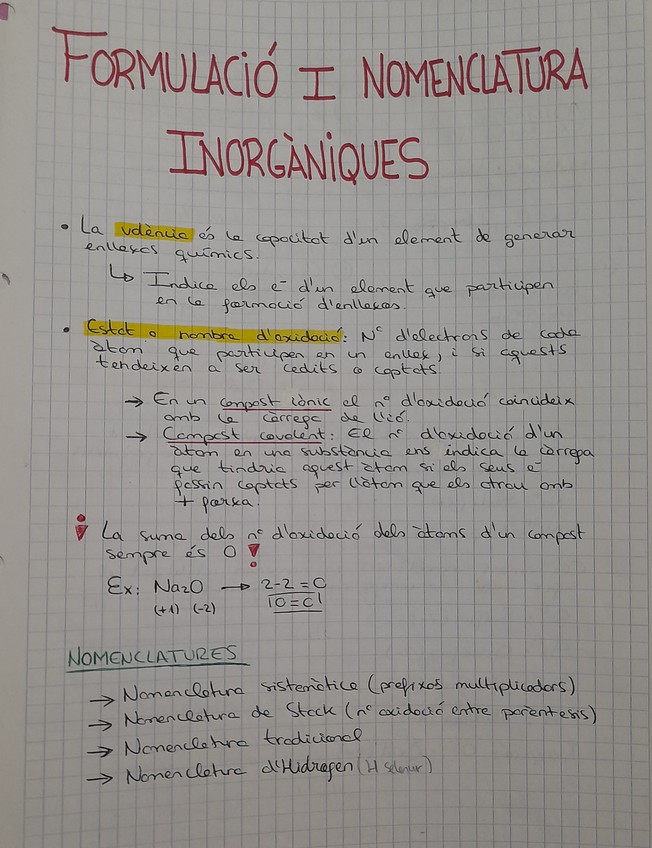 FORMULACIÓ I NOMENCLATURA
INORGÀNIQUES
• La valència és la capacitat d'un element de generar
enllaços químics.
↳ Indica els e⁻ d'un element que participen
en la formació d'enllaços.
• Estat o nombre d'oxidació: Nº d'electrons de cada
àtom que participen en un enllaç, i si aquests
tendeixen a ser cedits o captats.
→ En un compost iònic el nº d'oxidació coincideix
amb la càrrega de l'ió.
→ Compost covalent: El nº d'oxidació d'un
àtom en una substància ens indica la càrrega
que tindria aquest àtom si els seus e⁻
fossin captats per l'àtom que els atrau amb
+ força.
¡ La suma dels nº d'oxidació dels àtoms d'un compost
sempre és 0 !
Ex: Na₂O → 2-2=0
(+1) (-2) |0=0|
NOMENCLATURES
→ Nomenclatura sistemàtica (prefixos multiplicadors)
→ Nomenclatura de Stock (nº oxidació entre parèntesis)
→ Nomenclatura tradicional
→ Nomenclatura d'Hidrogen (H